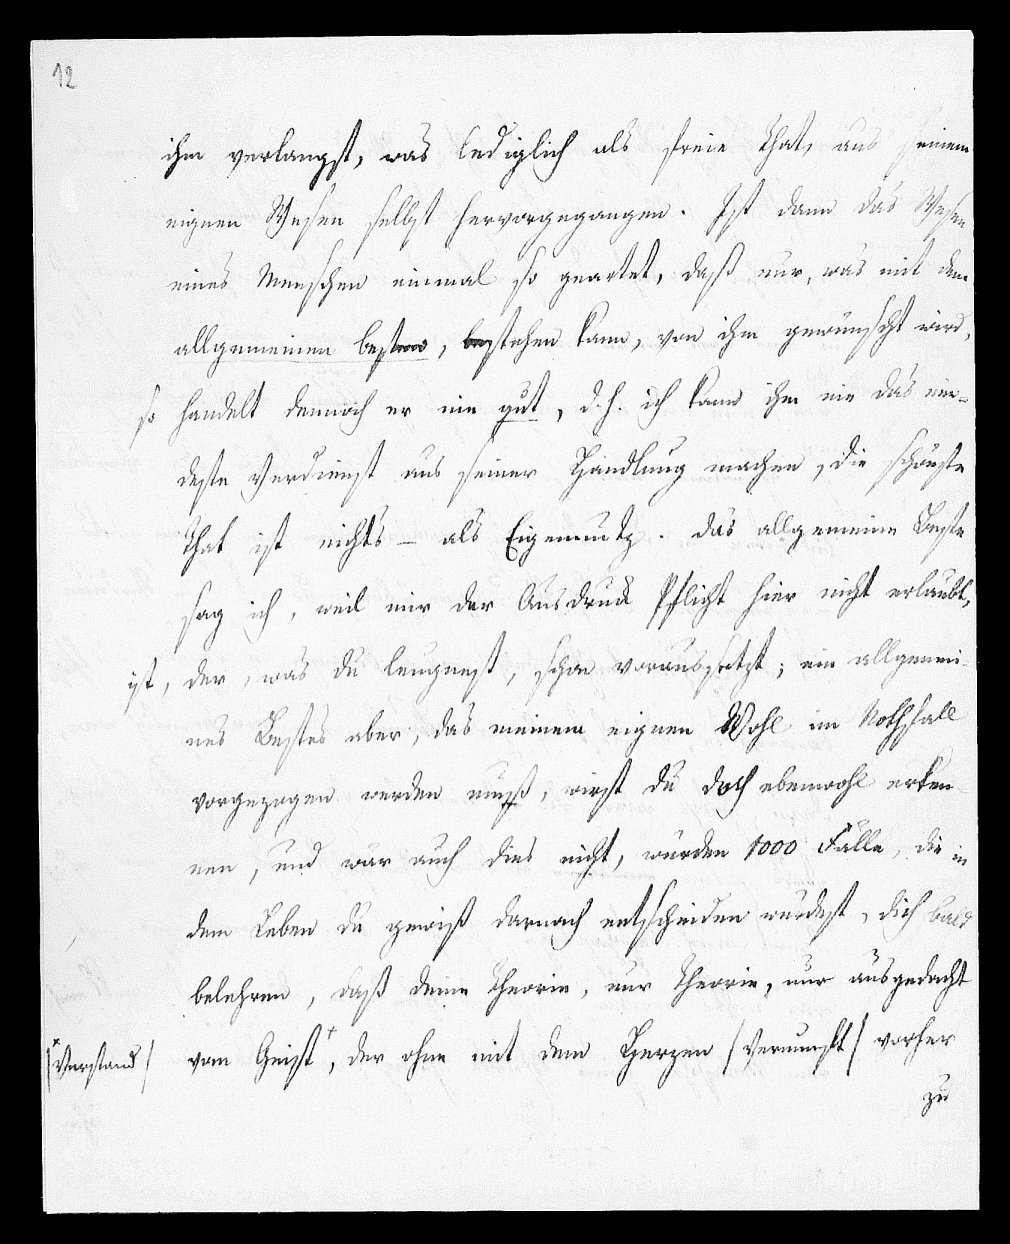 12
ihm verlangst, was lediglich als freie That, aus seinem
eignen Wesen selbst hervorgegangen. Ist dann das Wesen
eines Menschen einmal so geartet, daß nur, was mit dem
allgemeinen besten, bestehen kann, von ihm gewünscht wird,
so handelt dennoch er nie gut, d. h. ich kann ihm nie das min-
deste Verdienst aus seiner Handlung machen, die schönste
That ist nichts – als Eigennutz. Das allgemeine Beste
sag ich, weil mir der Ausdruck Pflicht hier nicht erlaubt,
ist, der, was du leugnest, schon voraussetzt; ein allgemei-
nes Bestes aber, das meinem eignen Wohl im Nothfall
vorgezogen werden muß, wirst du doch ebenwohl erken-
nen, und wär auch dies nicht, würden 1000 Fälle, die in
dem Leben du gewiß darnach entscheiden würdest, dich bald
belehren, daß deine Theorie, nur Theorie, nur ausgedacht
vom Geist+, der ohne mit dem Herzen /Vernunft/ vorher
/+Verstand/
zu